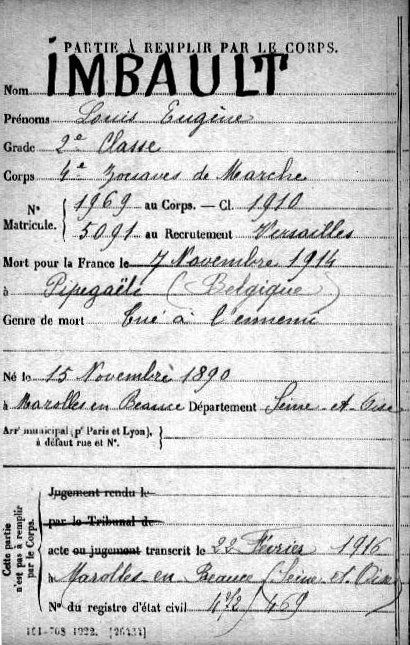 PARTIE À REMPLIR PAR LE CORPS.
Nom IMBAULT
Prénoms Louis Eugène
Grade 2e Classe
Corps 4e Zouaves de Marche
N° Matricule. { 1969 au Corps. — Cl. 1910
5091 au Recrutement Versailles
Mort pour la France le 7 Novembre 1914
à Pipegaële (Belgique)
Genre de mort Tué à l'ennemi
Né le 15 Novembre 1890
à Marolles en Beauce Département Seine et Oise
Arrt municipal (pr Paris et Lyon), à défaut rue et N°. }
Cette partie n'est pas à remplir par le Corps.
Jugement rendu le
par le Tribunal de
acte ou jugement transcrit le 22 Février 1916
à Marolles en Beauce (Seine et Oise)
N° du registre d'état civil 469